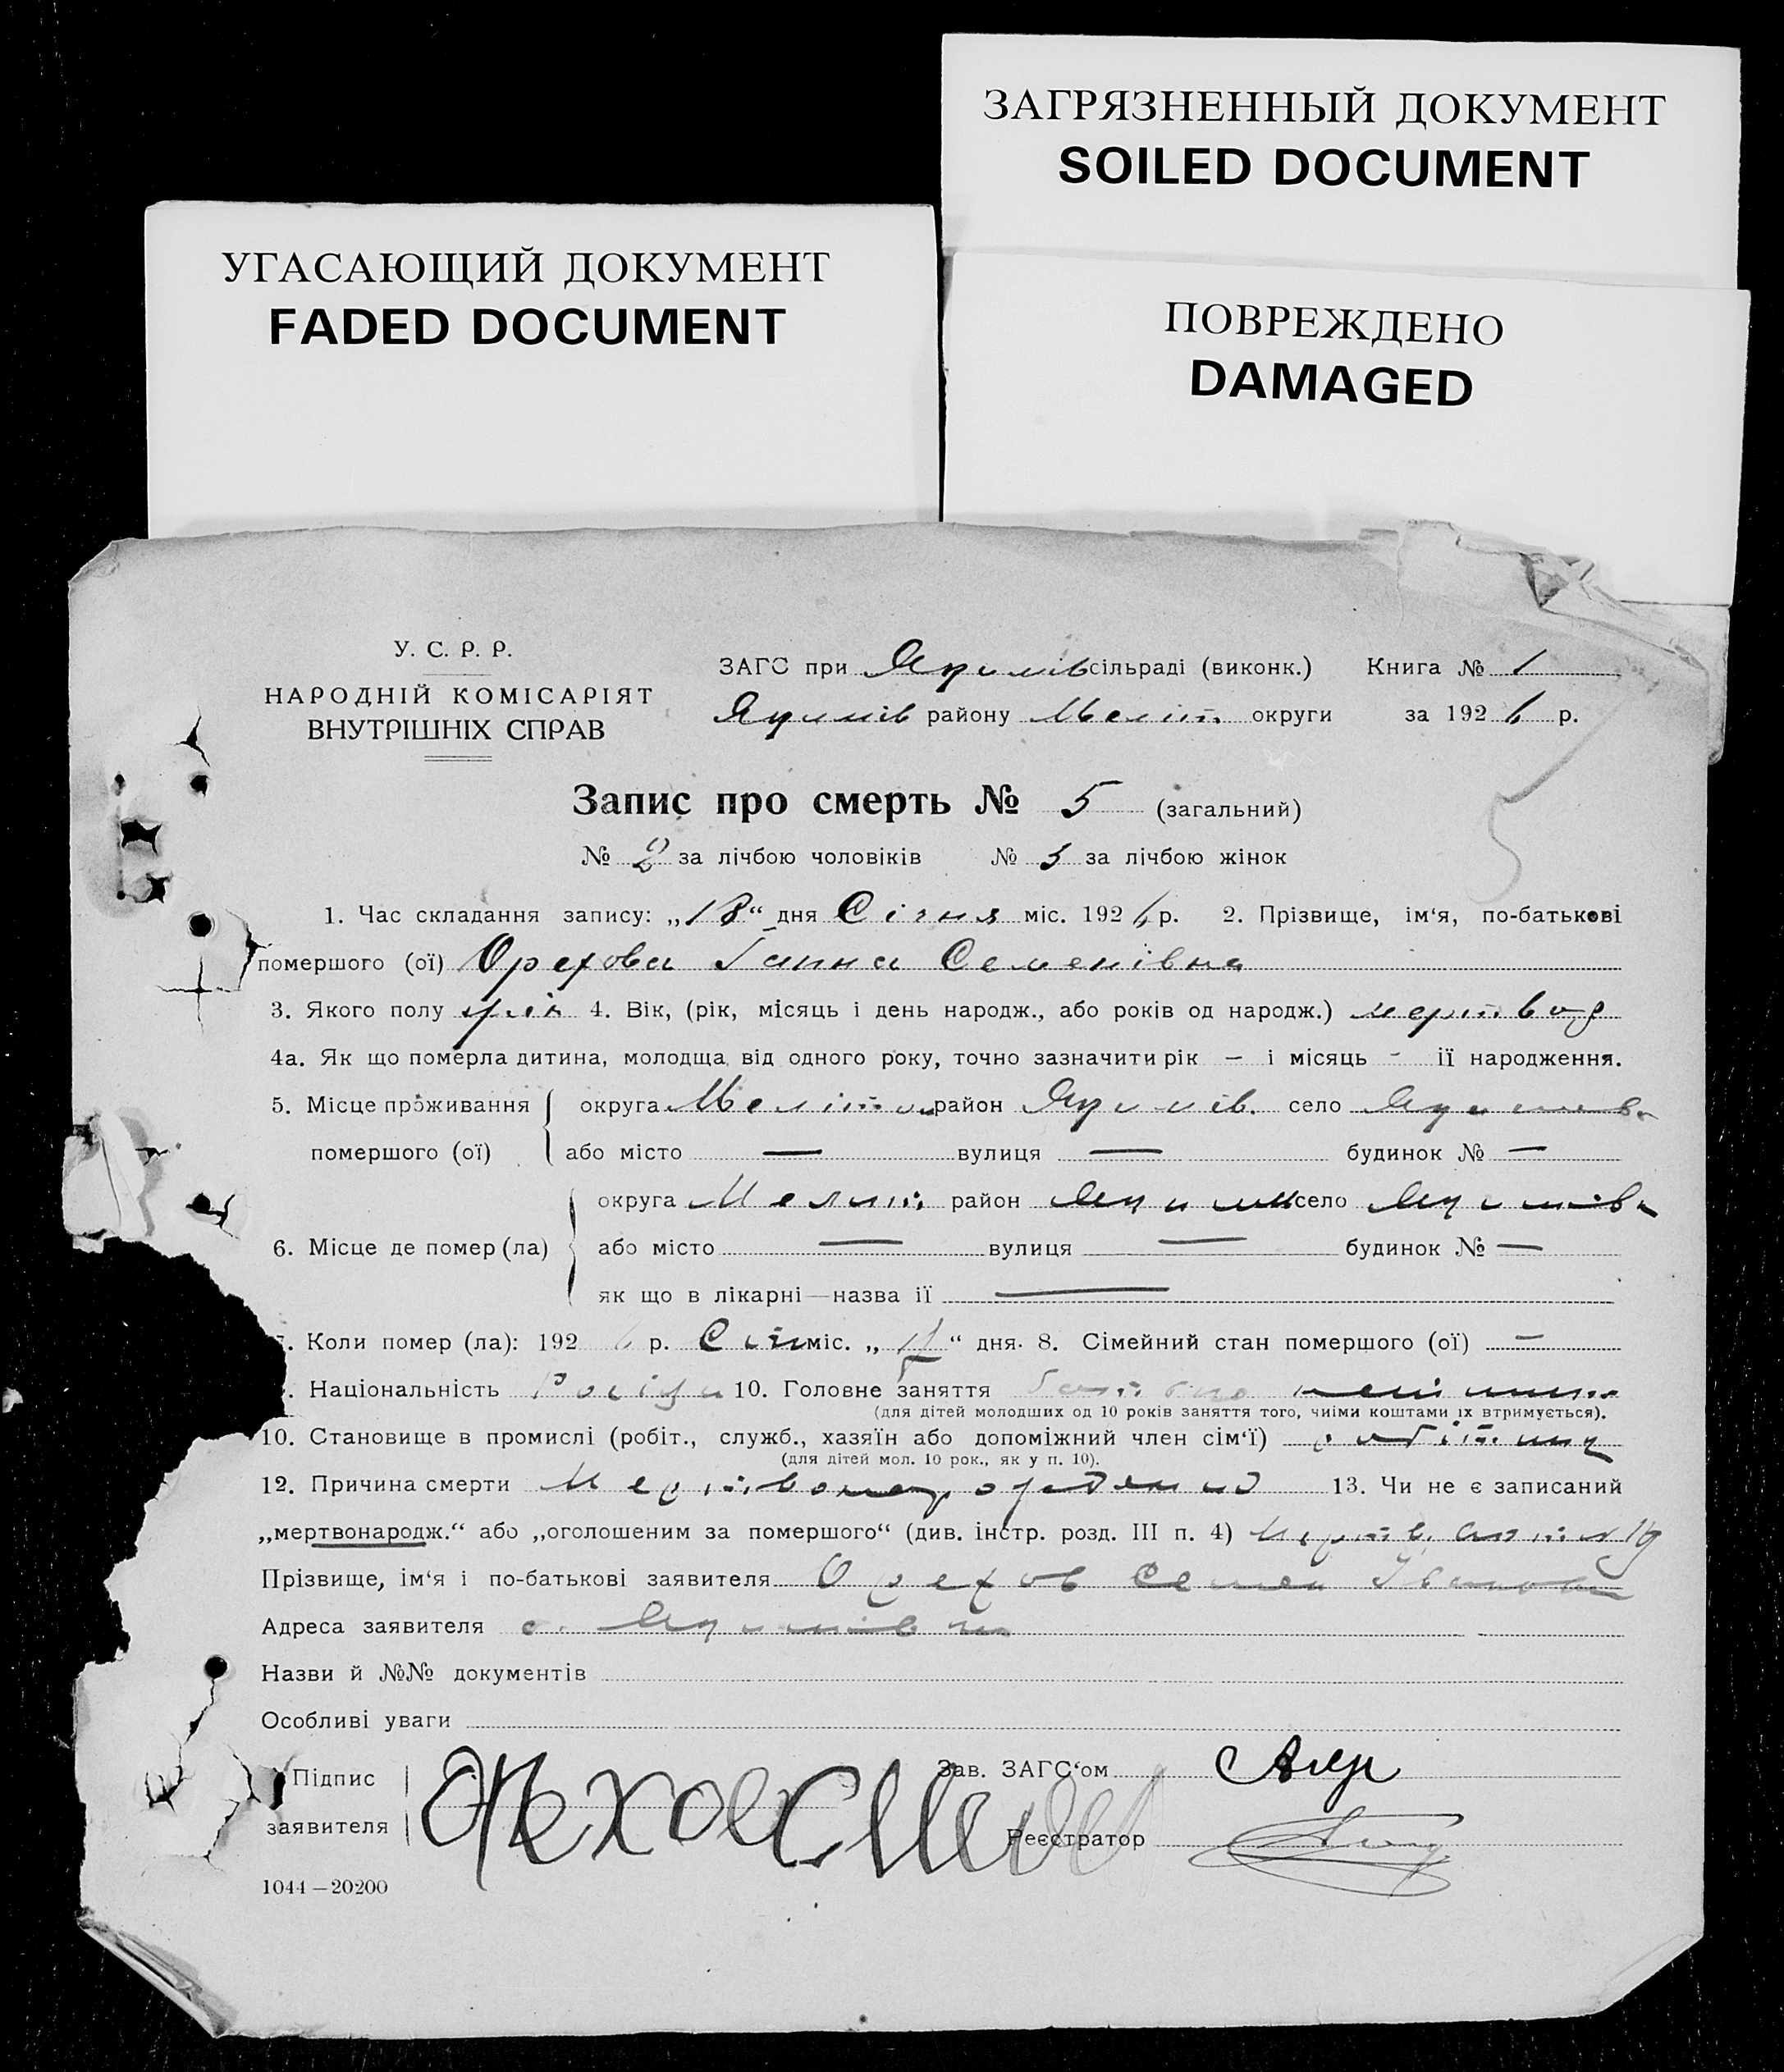 ЗАГРЯЗНЕННЫЙ ДОКУМЕНТ
SOILED DOCUMENT
УГАСАЮЩИЙ ДОКУМЕНТ
FADED DOCUMENT
ПОВРЕЖДЕНО
DAMAGED
У. С. Р. Р.
НАРОДНІЙ КОМІСАРІЯТ
ВНУТРІШНІХ СПРАВ
ЗАГС при Якимів сільраді (виконк.) Книга № 1
Якимів району Меліт. округи за 1926 р.
Запис про смерть № 5 (загальний)
5
№ 2 за лічбою чоловіків № 3 за лічбою жінок
1. Час складання запису: „18“ дня Січня міс. 1926 р. 2. Прізвище, ім‘я, по-батькові
помершого (ої) Орехова Ганна Семенівна
3. Якого полу жін 4. Вік, (рік, місяць і день народж., або років од народж.)
4а. Як що померла дитина, молодща від одного року, точно зазначити рік – і місяць - ії народження.
5. Місце проживання округа Меліто район Якимів. село Якимів.
помершого (ої) або місто — вулиця — будинок № —
округа Меліт район Яким село Якимівк
6. Місце де помер (ла) або місто — вулиця — будинок № —
як що в лікарні—назва ії —
Коли помер (ла): 1926 р. Січн міс. „ “ дня. 8. Сімейний стан помершого (ої) —
Національність 10. Головне заняття
(для дітей молодших од 10 років заняття того, чиїми коштами їх втримується).
10. Становище в промислі (робіт., служб., хазяїн або допоміжний член сім‘ї) робітниц
(для дітей мол. 10 рок., як у п. 10).
12. Причина смерти 13. Чи не є записаний
„мертвонародж.“ або „оголошеним за помершого“ (див. інстр. розд. III п. 4)
Прізвище, ім‘я і по-батькові заявителя Орехов Семен Іванов
Адреса заявителя с. Якимівка
Назви й №№ документів
Особливі уваги
Підпис
заявителя
Зав. ЗАГС‘ом
Реєстратор
1044—20200